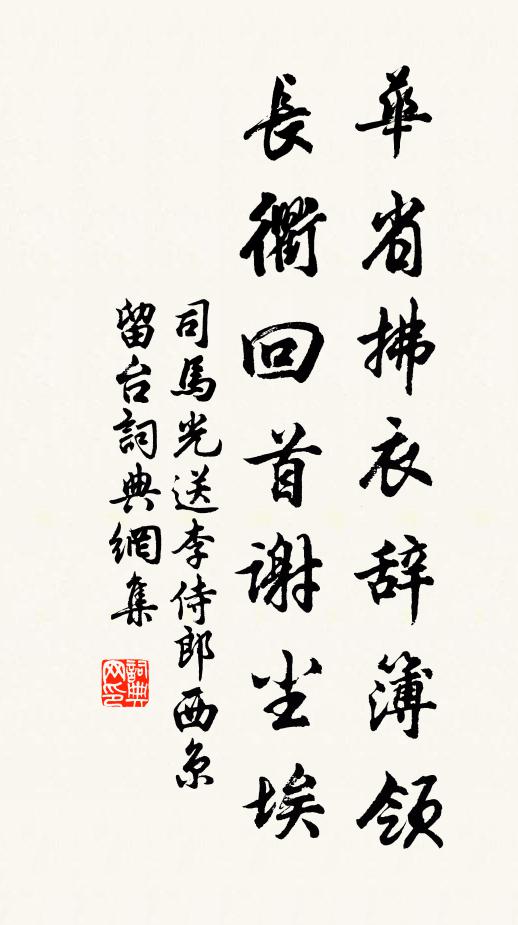 華省拂衣辞簿领
長衢回首謝尘埃
司馬光送李侍郎西京
留台詞典網集
詞典网印